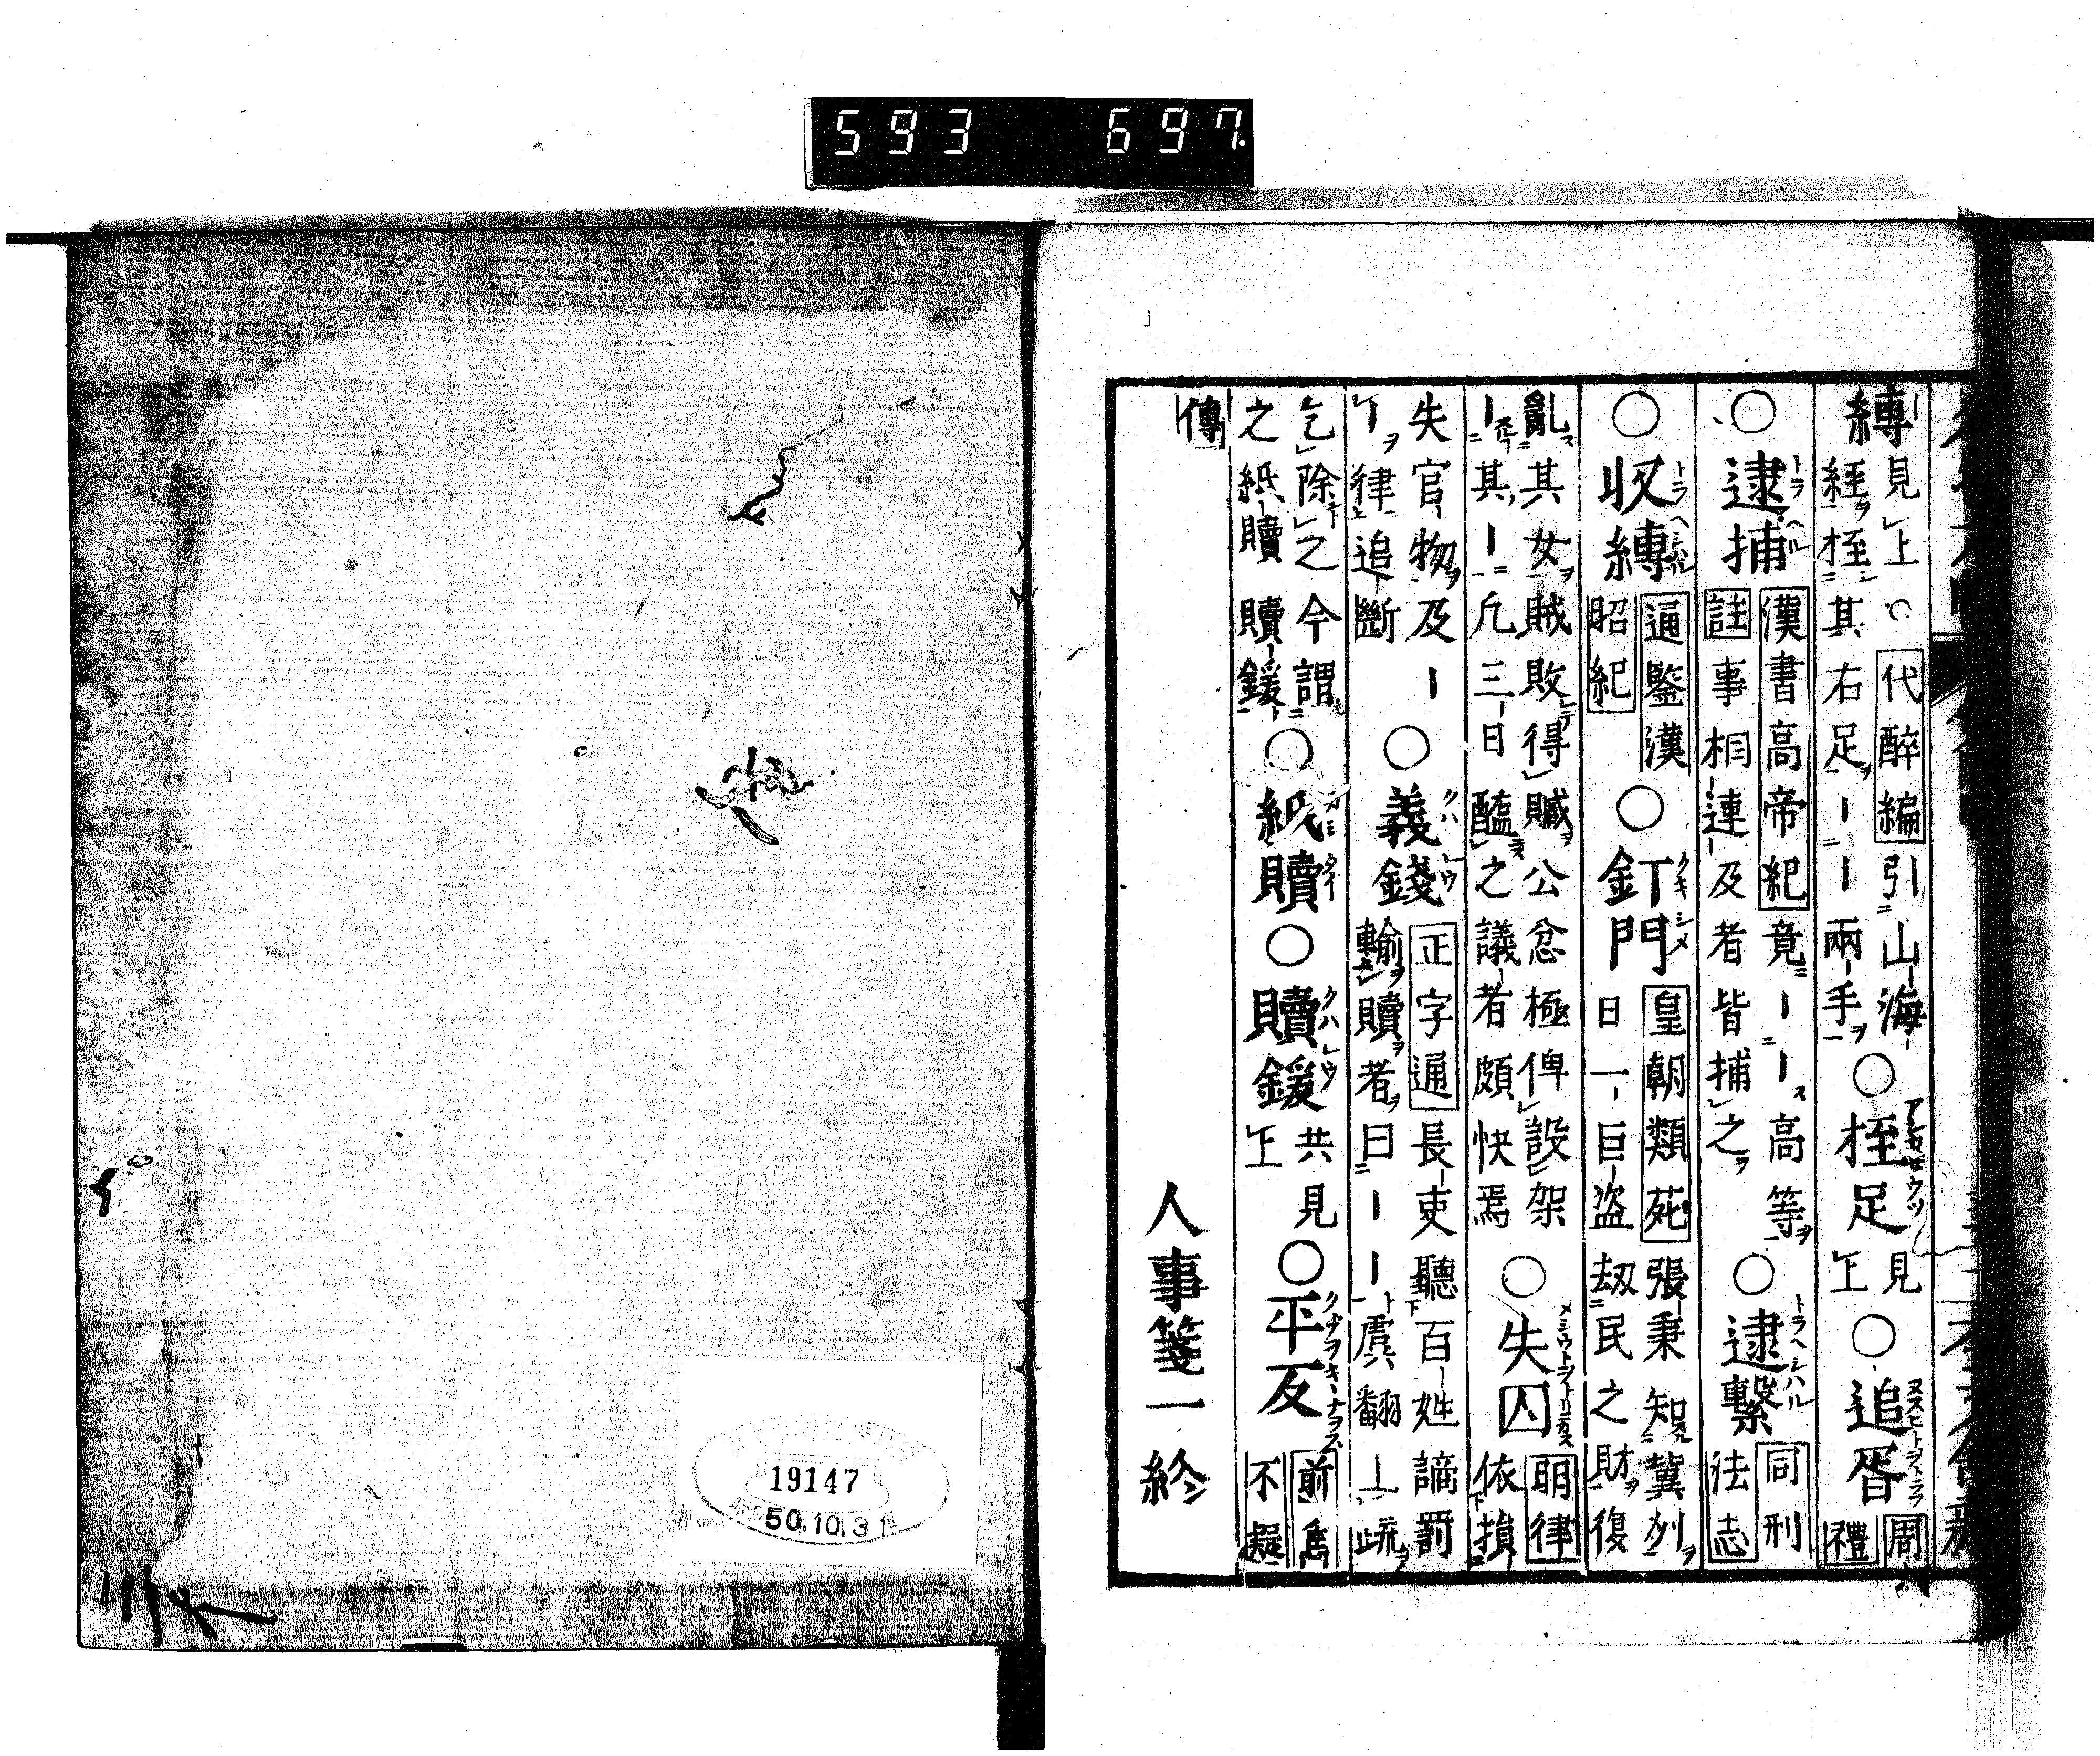 593 697
縛 見上○代醉編引山海
經桎其右足ーー兩手 ○桎足 見上 ○追胥 周禮
○逮捕 漢書高帝紀竟ーー高等
註事相連及者皆捕之 ○逮繫 同刑法志
○収縛 通鑒漢昭紀 ○釘門 皇朝類苑張秉知冀列
日一巨盗劫民之財復
亂其女賊敗得贓公忿極俾設架
ー其ー凢三日醢之議者頗快焉 ○失囚 明律依損
失官物及ー
ー律追斷 ○義錢 正字通長吏聽百姓謫罰
輸贖者曰ーー虞翻上疏
乞除之今謂
之紙贖贖鍰 ○紙贖 ○贖鍰 共見上 ○平反 前雋不疑
傳
人事箋一終
19147
50.10.31